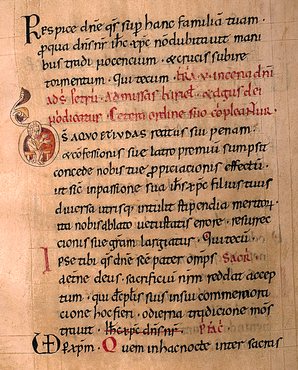 Respice dne qs sup hanc familiā tuam.
p qua dns nr ihc xpc n dubitauit mani
bus tradi nocencium. & crucis subire
tormentum. Qui tecum. Fr̄a v. in cena dn̄i
ad
ordine suo
Ds a quo & iudas reatus sui penam.
& confessionis sue latro premiū sumpsit
concede nobis tue ppiciacionis effectū.
ut sic in passione sua ihc xpc filius tuus
diuersa utrisq; intulit stipendia meritoꝝ
ita nobis ablato uetustatis errore. resurrec
cionis sue gr̄am largiatur. Qui tecū.
Ipse tibi qs dne sce pater omps Sacr̄
aeterne deus. sacrificiū nr̄m reddat accep
tum. qui discipulis suis in sui commemoraci
one hoc fieri. odierna tradicione mons
trauit. ihc xpc dns nr.
Quem in hac nocte inter sacras